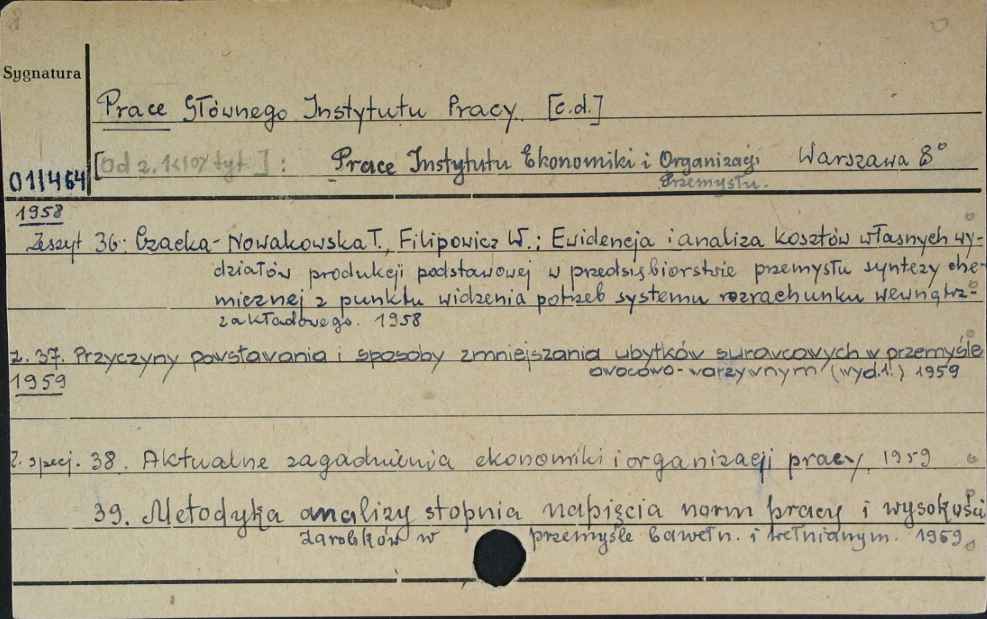 Sygnatura
Prace Głównego Instytutu Pracy. [c.d.]
[od z. tyt.]: Prace Instytutu Ekonomiki i Organizacji Warszawa 8°
Przemysłu.
011464
1958
Zeszyt 36: Czacka-Nowakowska T., Filipowicz W.: Ewidencja i analiza kosztów własnych wy-
działów produkcji podstawowej w przedsiębiorstwie przemysłu syntezy che-
micznej z punktu widzenia potrzeb systemu rozrachunku wewnątrz-
zakładowego. 1958
z. 37. Przyczyny powstawania i sposoby zmniejszania ubytków surowcowych w przemyśle
1959 owocowo-warzywnym (wyd.1.) 1959
Z. specj. 38. Aktualne zagadnienia ekonomiki i organizacji pracy, 1959
39. Metodyka analizy stopnia napięcia norm pracy i wysokości
zarobków w przemyśle bawełn. i wełnianym. 1959.